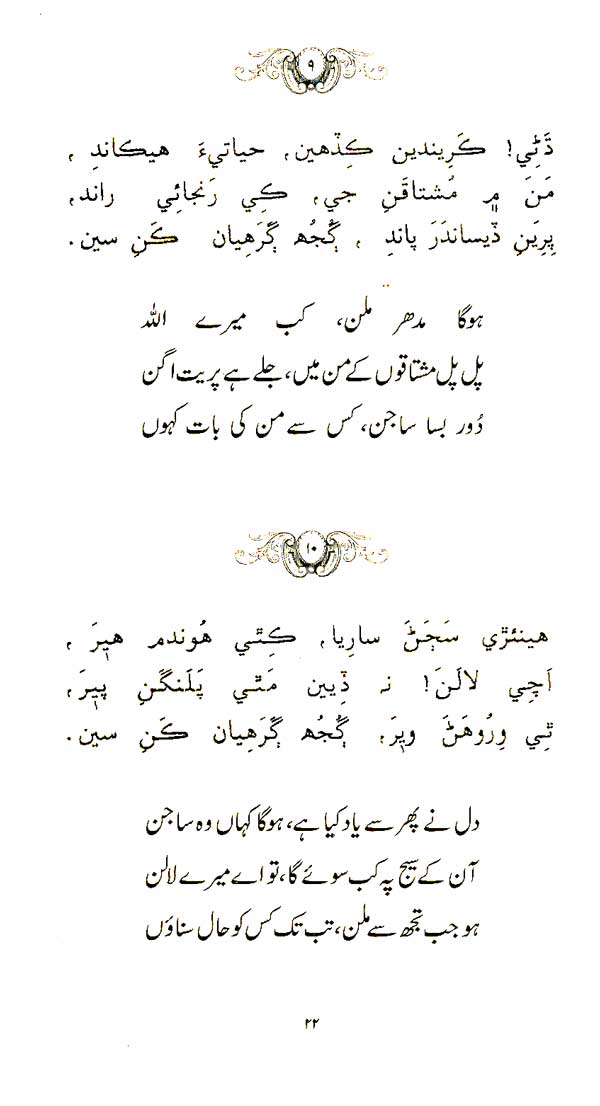 ۹
ڌَڻِي! ڪَرِيندين ڪِڏهين، حياتيءَ هيڪاندِ ،
مَنَ ۾ مُشتاقَنِ جي، ڪِي رَنجائِي راند،
پِرِيَنِ ڏيساندَرَ پاندِ ، ڳُجُهه ڳَرَهِيان ڪَنِ سين.
ہوگا مدھر ملن، کب میرے اللہ
پل پل مشتاقوں کے من میں، جلے ہے پریت اگن
دُور بسا ساجن، کس سے من کی بات کہوں
۱۰
هينئڙي سَڄَڻَ ساريا، ڪِٿي هُوندم هيرَ ،
اَچِي لالَنَ! نہ ڏِيين مَٿي پَلَنگَنِ پيرَ،
ٿِي وِرُوهَڻَ ويرَ، ڳُجُهه ڳَرَهِيان ڪَنِ سين.
دل نے پھر سے یاد کیا ہے، ہوگا کہاں وہ ساجن
آن کے سیج پہ کب سوئے گا، تو اے میرے لالن
ہو جب تجھ سے ملن، تب تک کس کو حال سناؤں
۲۲